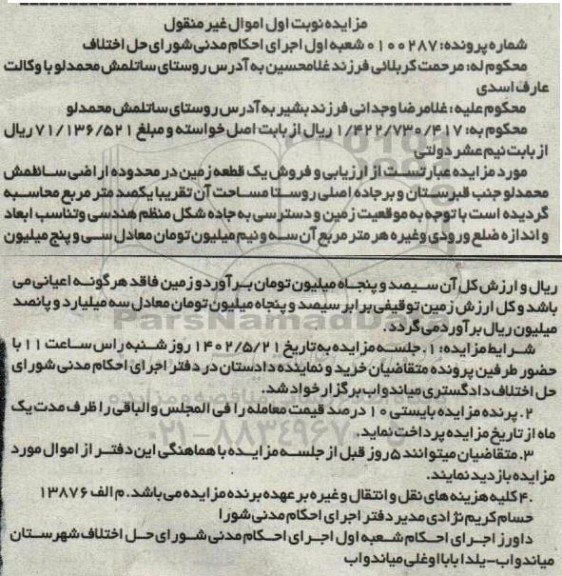 مزایده نوبت اول اموال غیر منقول
شماره پرونده: ۰۱۰۰۲۸۷ شعبه اول اجرای احکام مدنی شورای حل اختلاف
محکوم له: مرحمت کربلائی فرزند غلامحسین به آدرس روستای ساتلمش محمدلو با وکالت
عارف اسدی
محکوم علیه: غلامرضا وجدانی فرزند بشیر به آدرس روستای ساتلمش محمدلو
محکوم به: ۱/۴۲۲/۷۳۰/۴۱۷ ریال از بابت اصل خواسته و مبلغ ۷۱/۱۳۶/۵۲۱ ریال
از بابت نیم عشر دولتی
مورد مزایده عبارتست از ارزیابی و فروش یک قطعه زمین در محدوده اراضی ساطمش
محمدلو جنب قبرستان و بر جاده اصلی روستا مساحت آن تقریبا یکصد متر مربع محاسبه
گردیده است با توجه به موقعیت زمین و دسترسی به جاده شکل منظم هندسی و تناسب ابعاد
و اندازه ضلع ورودی وغیره هر متر مربع آن سه و نیم میلیون تومان معادل سی و پنج میلیون
ریال و ارزش کل آن سیصد و پنجاه میلیون تومان برآورد و زمین فاقد هرگونه اعیانی می
باشد و کل ارزش زمین توقیفی برابر سیصد و پنجاه میلیون تومان معادل سه میلیارد و پانصد
میلیون ریال برآورد می گردد.
شرایط مزایده: ۱. جلسه مزایده به تاریخ ۱۴۰۲/۵/۲۱ روز شنبه راس ساعت ۱۱ با
حضور طرفین پرونده متقاضیان خرید و نماینده دادستان در دفتر اجرای احکام مدنی شورای
حل اختلاف دادگستری میاندواب برگزار خواد شد.
۲. پرنده مزایده بایستی ۱۰ درصد قیمت معامله را فی المجلس والباقی را ظرف مدت یک
ماه از تاریخ مزایده پرداخت نماید.
۳. متقاضیان میتوانند ۵ روز قبل از جلسه مزایده با هماهنگی این دفتر از اموال مورد
مزایده بازدید نمایند.
۴. کلیه هزینه های نقل و انتقال و غیره بر عهده برنده مزایده می باشد. م الف ۱۳۸۷۶
حسام کریم نژادی مدیر دفتر اجرای احکام مدنی شورا
داورز اجرای احکام شعبه اول اجرای احکام مدنی شورای حل اختلاف شهرستان
میاندواب-یلدا بابا اوغلی میاندواب
ParsNamadData
۰۲۱-۸۸۳۴۹۶۷۰-۵